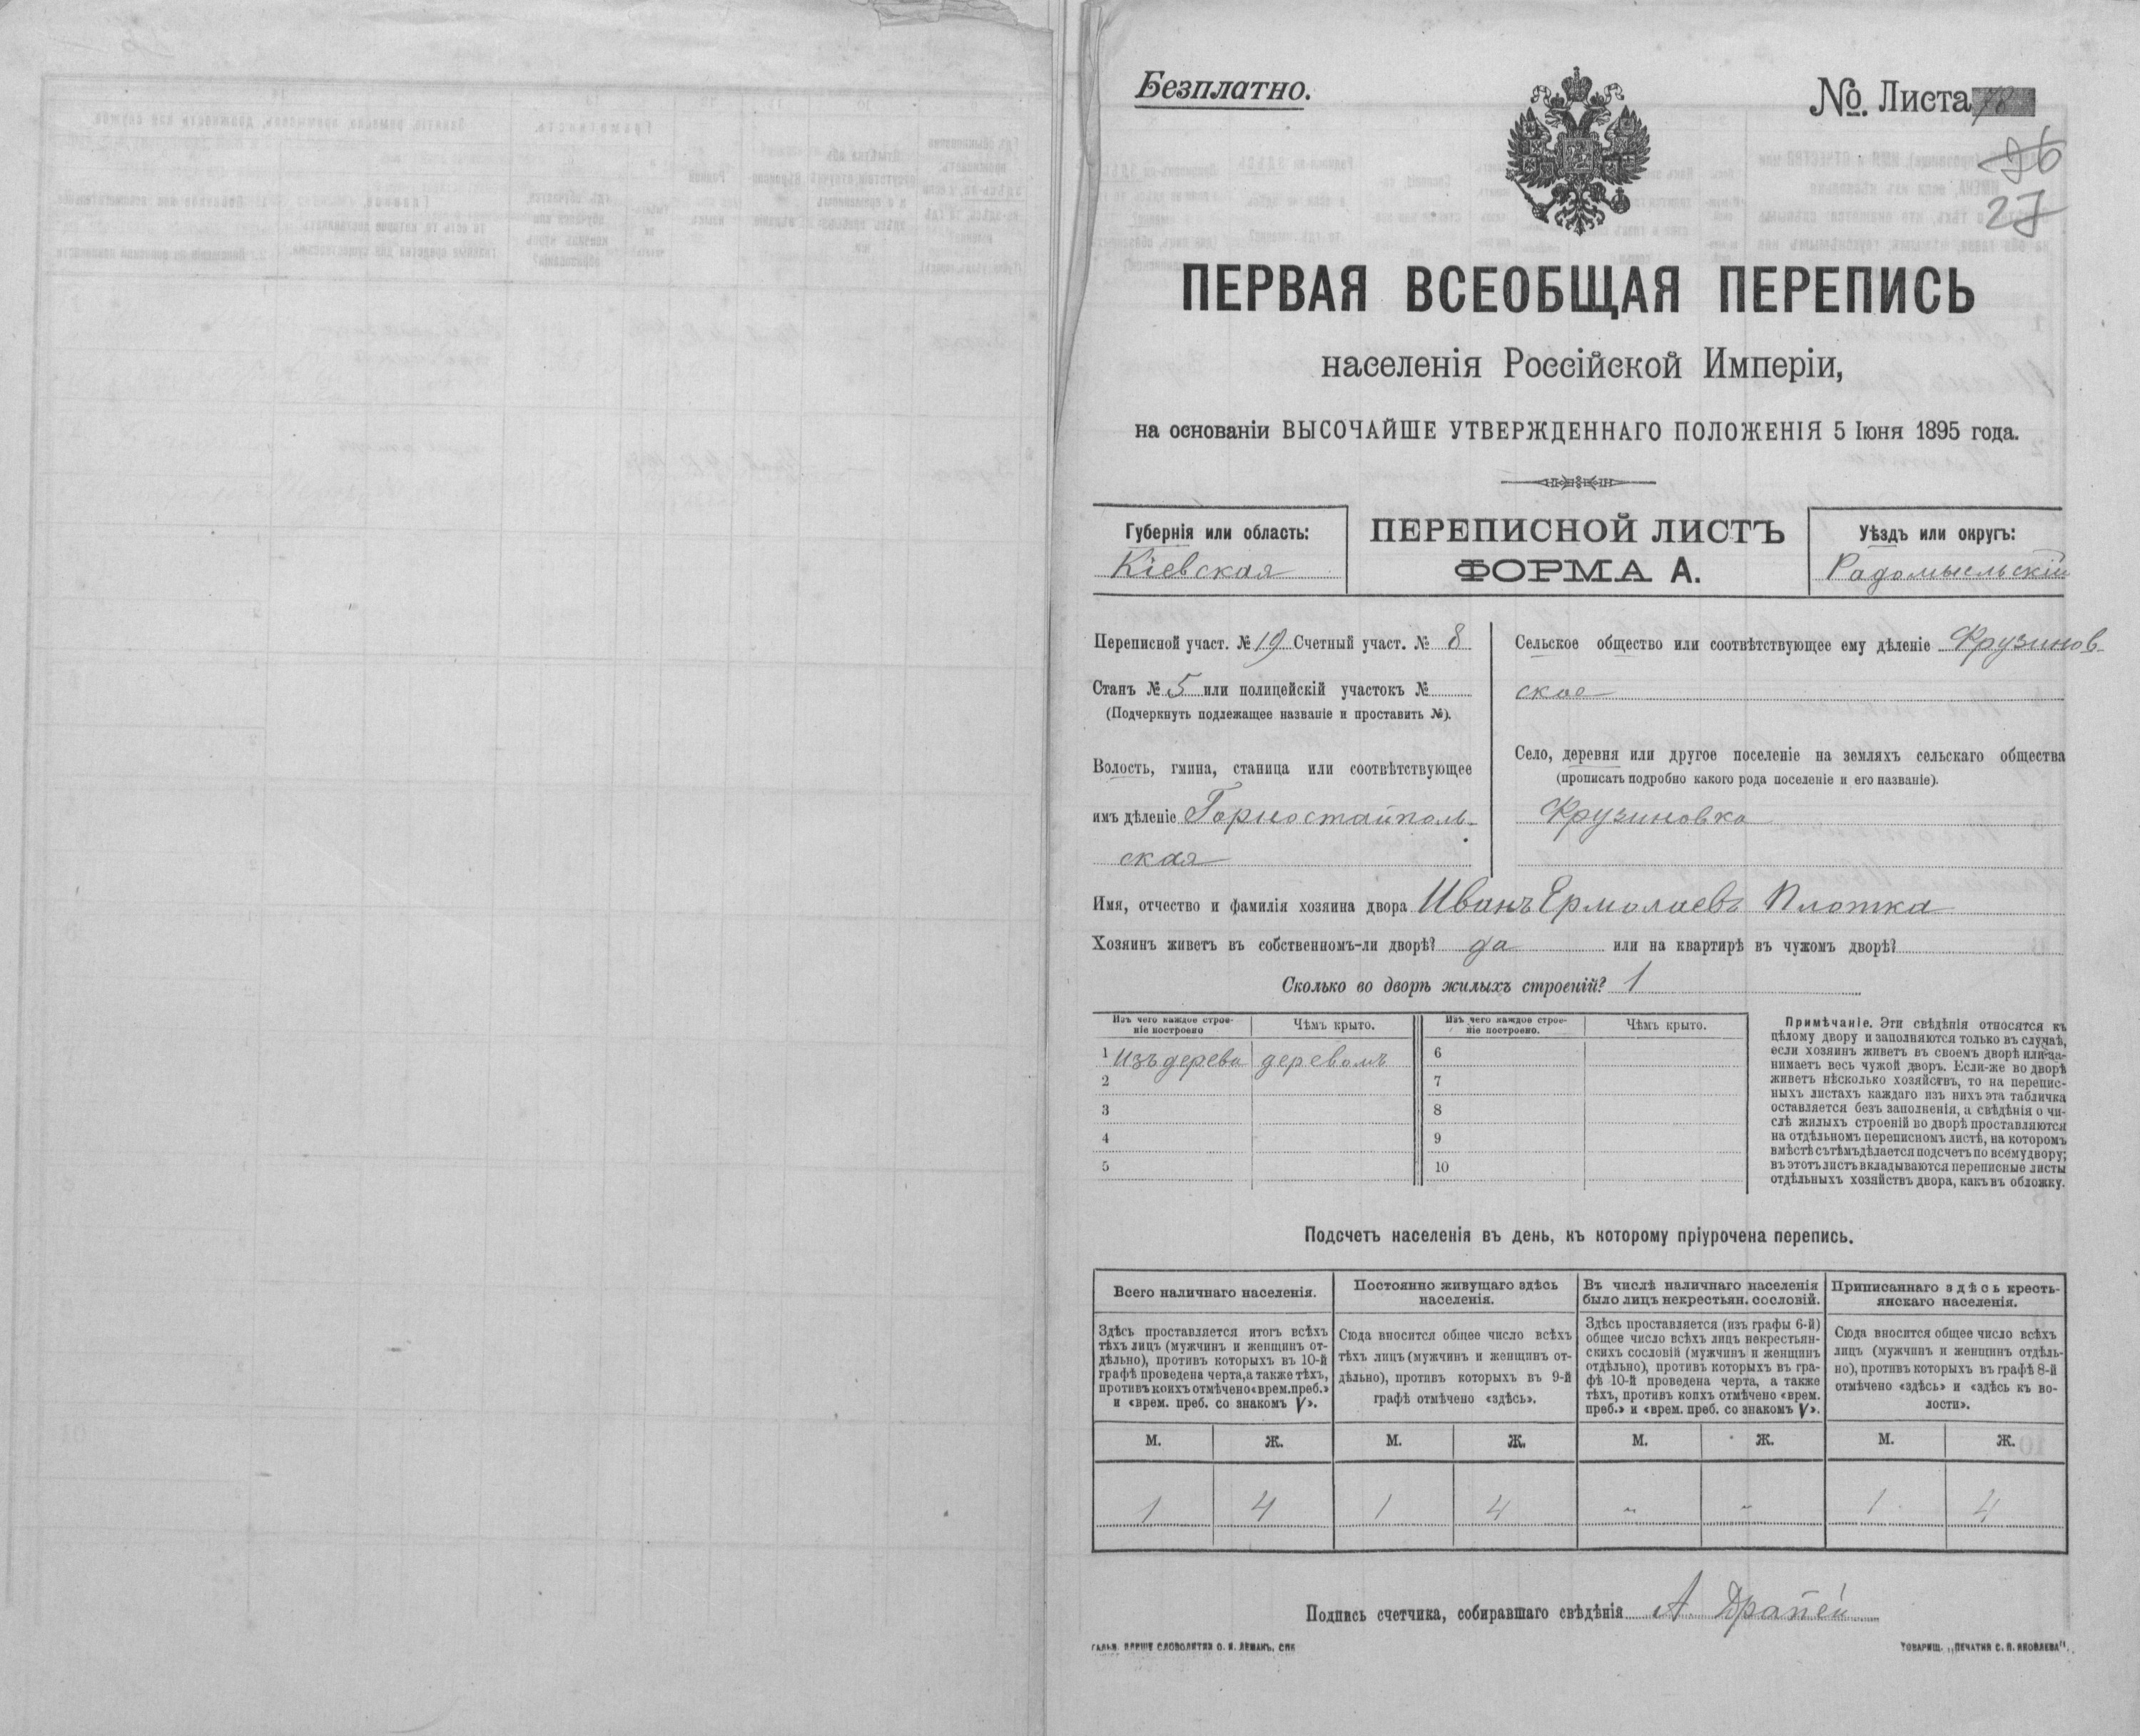 Безплатно.
№. Листа 78
26
27
ПЕРВАЯ ВСЕОБЩАЯ ПЕРЕПИСЬ
населенія Россійской Имперіи,
на основаніи ВЫСОЧАЙШЕ УТВЕРЖДЕННАГО ПОЛОЖЕНІЯ 5 Іюня 1895 года.
Губернія или область:
Кіевская
ПЕРЕПИСНОЙ ЛИСТЪ
ФОРМА А.
Уѣздъ или округъ:
Радомысльскій
Переписной участ. № 19 Счетный участ. № 8
Станъ № 5 или полицейскій участокъ №
(Подчеркнуть подлежащее названіе и проставить №).
Волость, гмина, станица или соотвѣтствующее
имъ дѣленіе Горностайполь-
ская
Сельское общество или соотвѣтствующее ему дѣленіе Фрузинов-
ское
Село, деревня или другое поселеніе на земляхъ сельскаго общества
(прописать подробно какого рода поселеніе и его названіе).
Фрузиновка
Имя, отчество и фамилія хозяина двора Иванъ Ермолаевъ Плотка
Хозяинъ живетъ въ собственномъ-ли дворѣ? да или на квартирѣ въ чужомъ дворѣ?
Сколько во дворѣ жилыхъ строеній? 1
Изъ чего каждое строе-
ніе построено
Чѣмъ крыто.
Изъ чего каждое строе-
ніе построено.
Чѣмъ крыто.
1 Изъ дерева деревомъ
2
3
4
5
6
7
8
9
10
Примѣчаніе. Эти свѣдѣнія относятся къ
цѣлому двору и заполняются только въ случаѣ,
если хозяинъ живетъ въ своемъ дворѣ или за-
нимаетъ весь чужой дворъ. Если-же во дворѣ
живетъ нѣсколько хозяйствъ, то на перепис-
ныхъ листахъ каждаго изъ нихъ эта табличка
оставляется безъ заполненія, а свѣдѣнія о чи-
слѣ жилыхъ строеній во дворѣ проставляются
на отдѣльномъ переписномъ листѣ, на которомъ
вмѣстѣ съ тѣмъ дѣлается подсчетъ по всему двору;
въ этотъ листъ вкладываются переписные листы
отдѣльныхъ хозяйствъ двора, какъ въ обложку.
Подсчетъ населенія въ день, къ которому пріурочена перепись.
Всего наличнаго населенія.
Здѣсь проставляется итогъ всѣхъ
тѣхъ лицъ (мужчинъ и женщинъ от-
дѣльно), противъ которыхъ въ 10-й
графѣ проведена черта, а также тѣхъ,
противъ коихъ отмѣчено «врем. преб.»
и «врем. преб. со знакомъ V».
Постоянно живущаго здѣсь
населенія.
Сюда вносится общее число всѣхъ
тѣхъ лицъ (мужчинъ и женщинъ от-
дѣльно), противъ которыхъ въ 9-й
графѣ отмѣчено «здѣсь».
Въ числѣ наличнаго населенія
было лицъ некрестьян. сословій.
Здѣсь проставляется (изъ графы 6-й)
общее число всѣхъ лицъ некрестьян-
скихъ сословій (мужчинъ и женщинъ
отдѣльно), противъ которыхъ въ гра-
фѣ 10-й проведена черта, а также
тѣхъ, противъ коихъ отмѣчено «врем.
преб.» и «врем. преб. со знакомъ V».
Приписаннаго здѣсь кресть-
янскаго населенія.
Сюда вносится общее число всѣхъ
лицъ (мужчинъ и женщинъ отдѣль-
но), противъ которыхъ въ графѣ 8-й
отмѣчено «здѣсь» и «здѣсь къ во-
лости».
М. Ж. М. Ж. М. Ж. М. Ж.
1 4 1 4 " " 1 4
Подпись счетчика, собиравшаго свѣдѣнія А
ТОВАРИЩ. „ПЕЧАТНЯ С. П. ЯКОВЛЕВА".